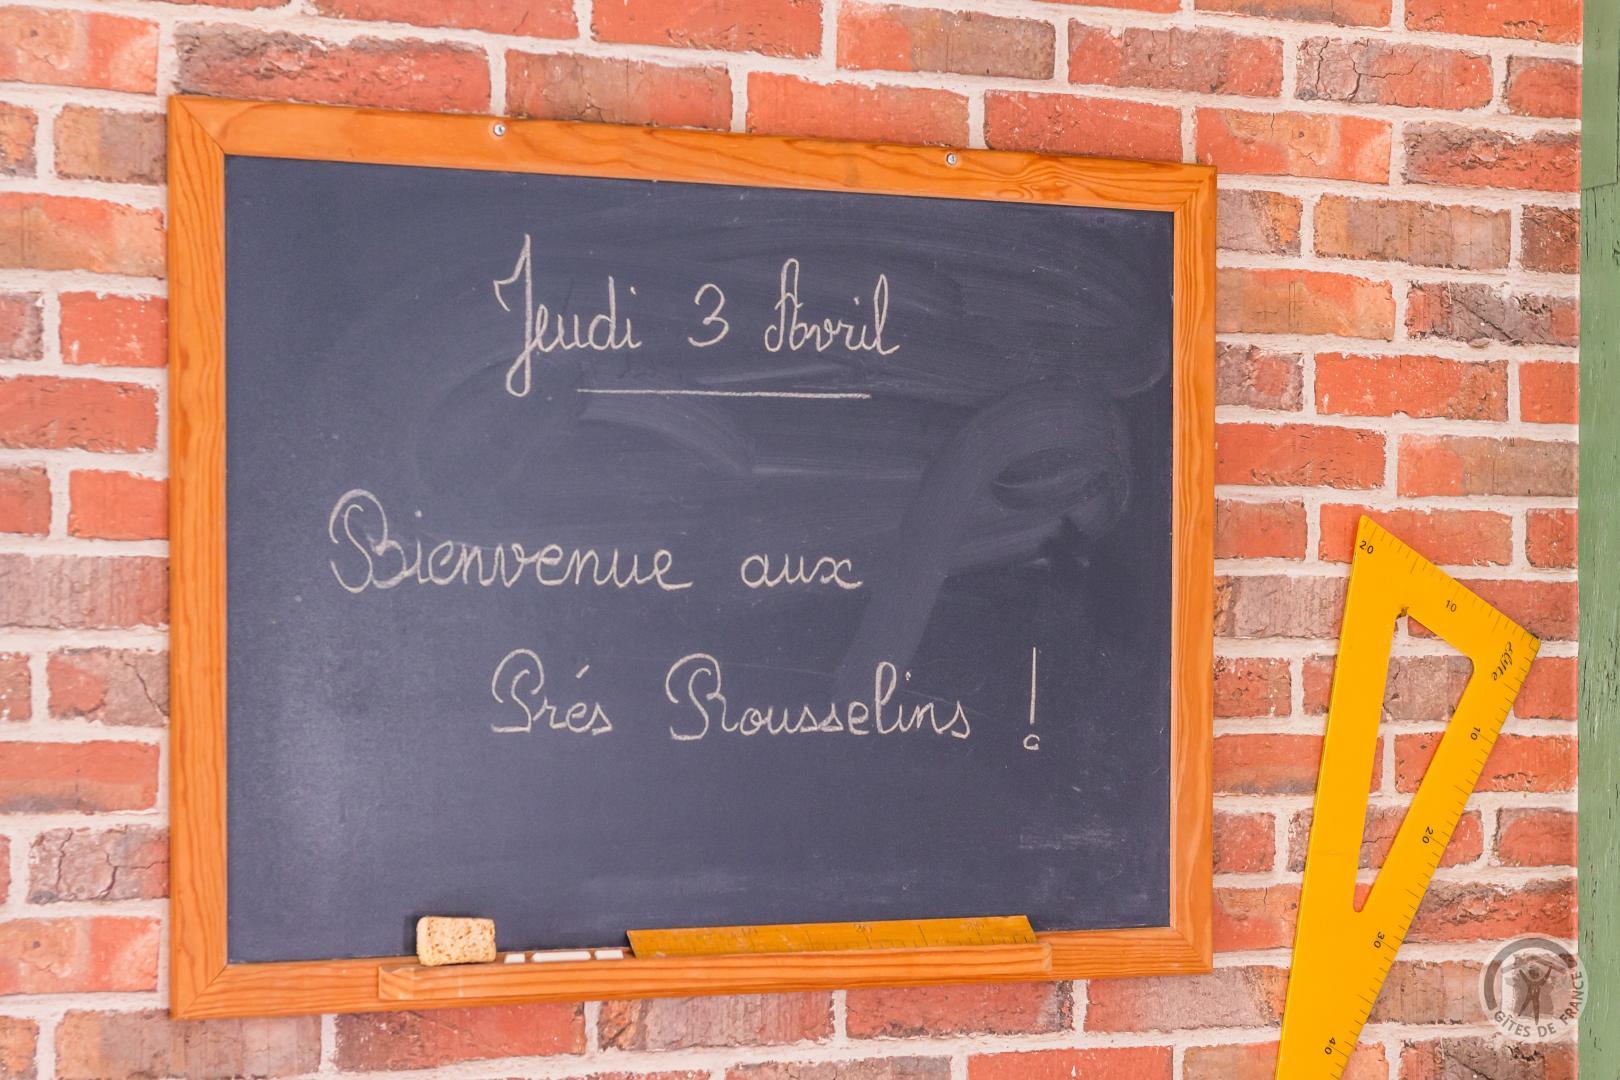 Jeudi 3 Avril
Bienvenue aux
Prés Rousselins !
20
10
10
20
30
40
GÎTES DE FRANCE